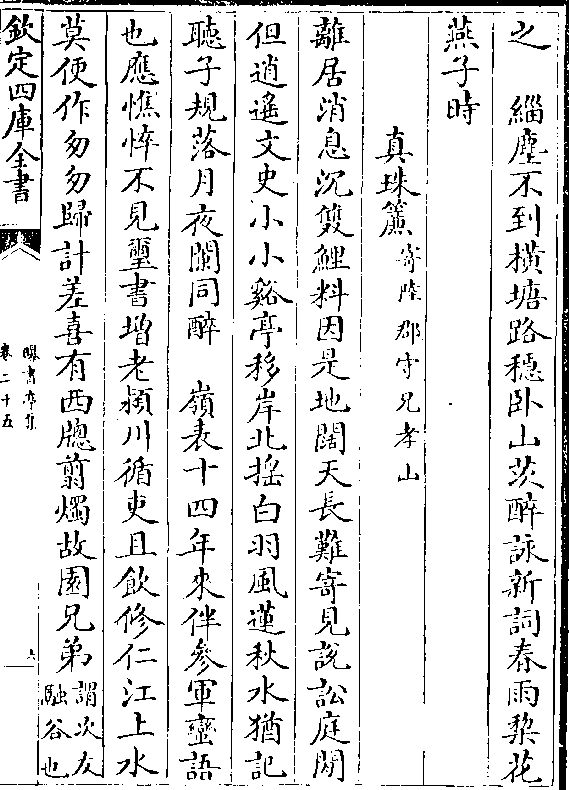 之　緇塵不到横塘路穩卧山茨醉詠新詞春雨棃花
燕子時
真珠簾寄陸郡守兄孝山
離居消息沉雙鯉料因是地闊天長難寄見說訟庭閒
但逍遙文史小小谿亭移岸北揺白羽風蓮秋水猶記
聽子規落月夜闌同醉　嶺表十四年來伴參軍蠻語
也應憔悴不見璽書增老潁川循吏且飲修仁江上水
莫便作匆匆歸計差喜有西牕翦燭故園兄弟謂次友融谷也
欽定四庫全書
曝書亭集
卷二十五
六